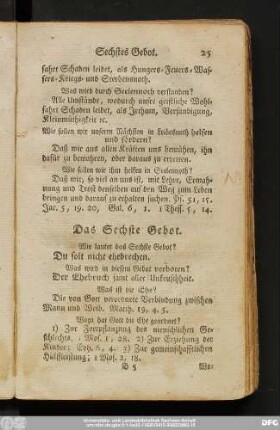 Sechstes Gebot. 25
fahrt Schaden leidet, als Hungers-Feuers-Was-
sers-Kriegs- und Sterbensnoth.
Was wird durch Seelennoth verstanden?
Alle Umstände, wodurch unsre geistliche Wohl-
fahrt Schaden leidet, als Irrthum, Versündigung,
Kleinmüthigkeit ꝛc.
Wie sollen wir unserm Nächsten in Leibesnoth helfen
und fördern?
Daß wir aus allen Kräften uns bemühen, ihn
dafür zu bewahren, oder daraus zu erretten.
Wie sollen wir ihm helfen in Seelennoth?
Daß wir, so viel an uns ist, mit Lehre, Ermah-
nung und Trost denselben auf den Weg zum Leben
bringen und darauf zu erhalten suchen. Ps. 51, 15.
Jac. 5, 19. 20, Gal. 6, 1. 1 Thess. 5, 14.
Das Sechste Gebot.
Wie lautet das Sechste Gebot?
Du solt nicht ehebrechen.
Was wird in diesem Gebot verboten?
Der Ehebruch samt aller Unkeuschheit.
Was ist die Ehe?
Die von Gott verordnete Verbindung zwischen
Mann und Weib. Matth. 19, 4. 5.
Wozu hat Gott die Ehe geordnet?
1) Zur Fortpflanzung des menschlichen Ge-
schlechts, 1 Mos. 1, 28. 2) Zur Erziehung der
Kinder; Eph. 6, 4. 3) Zur gemeinschaftlichen
Hülfleistung; 1 Mos. 2, 18.
B 5